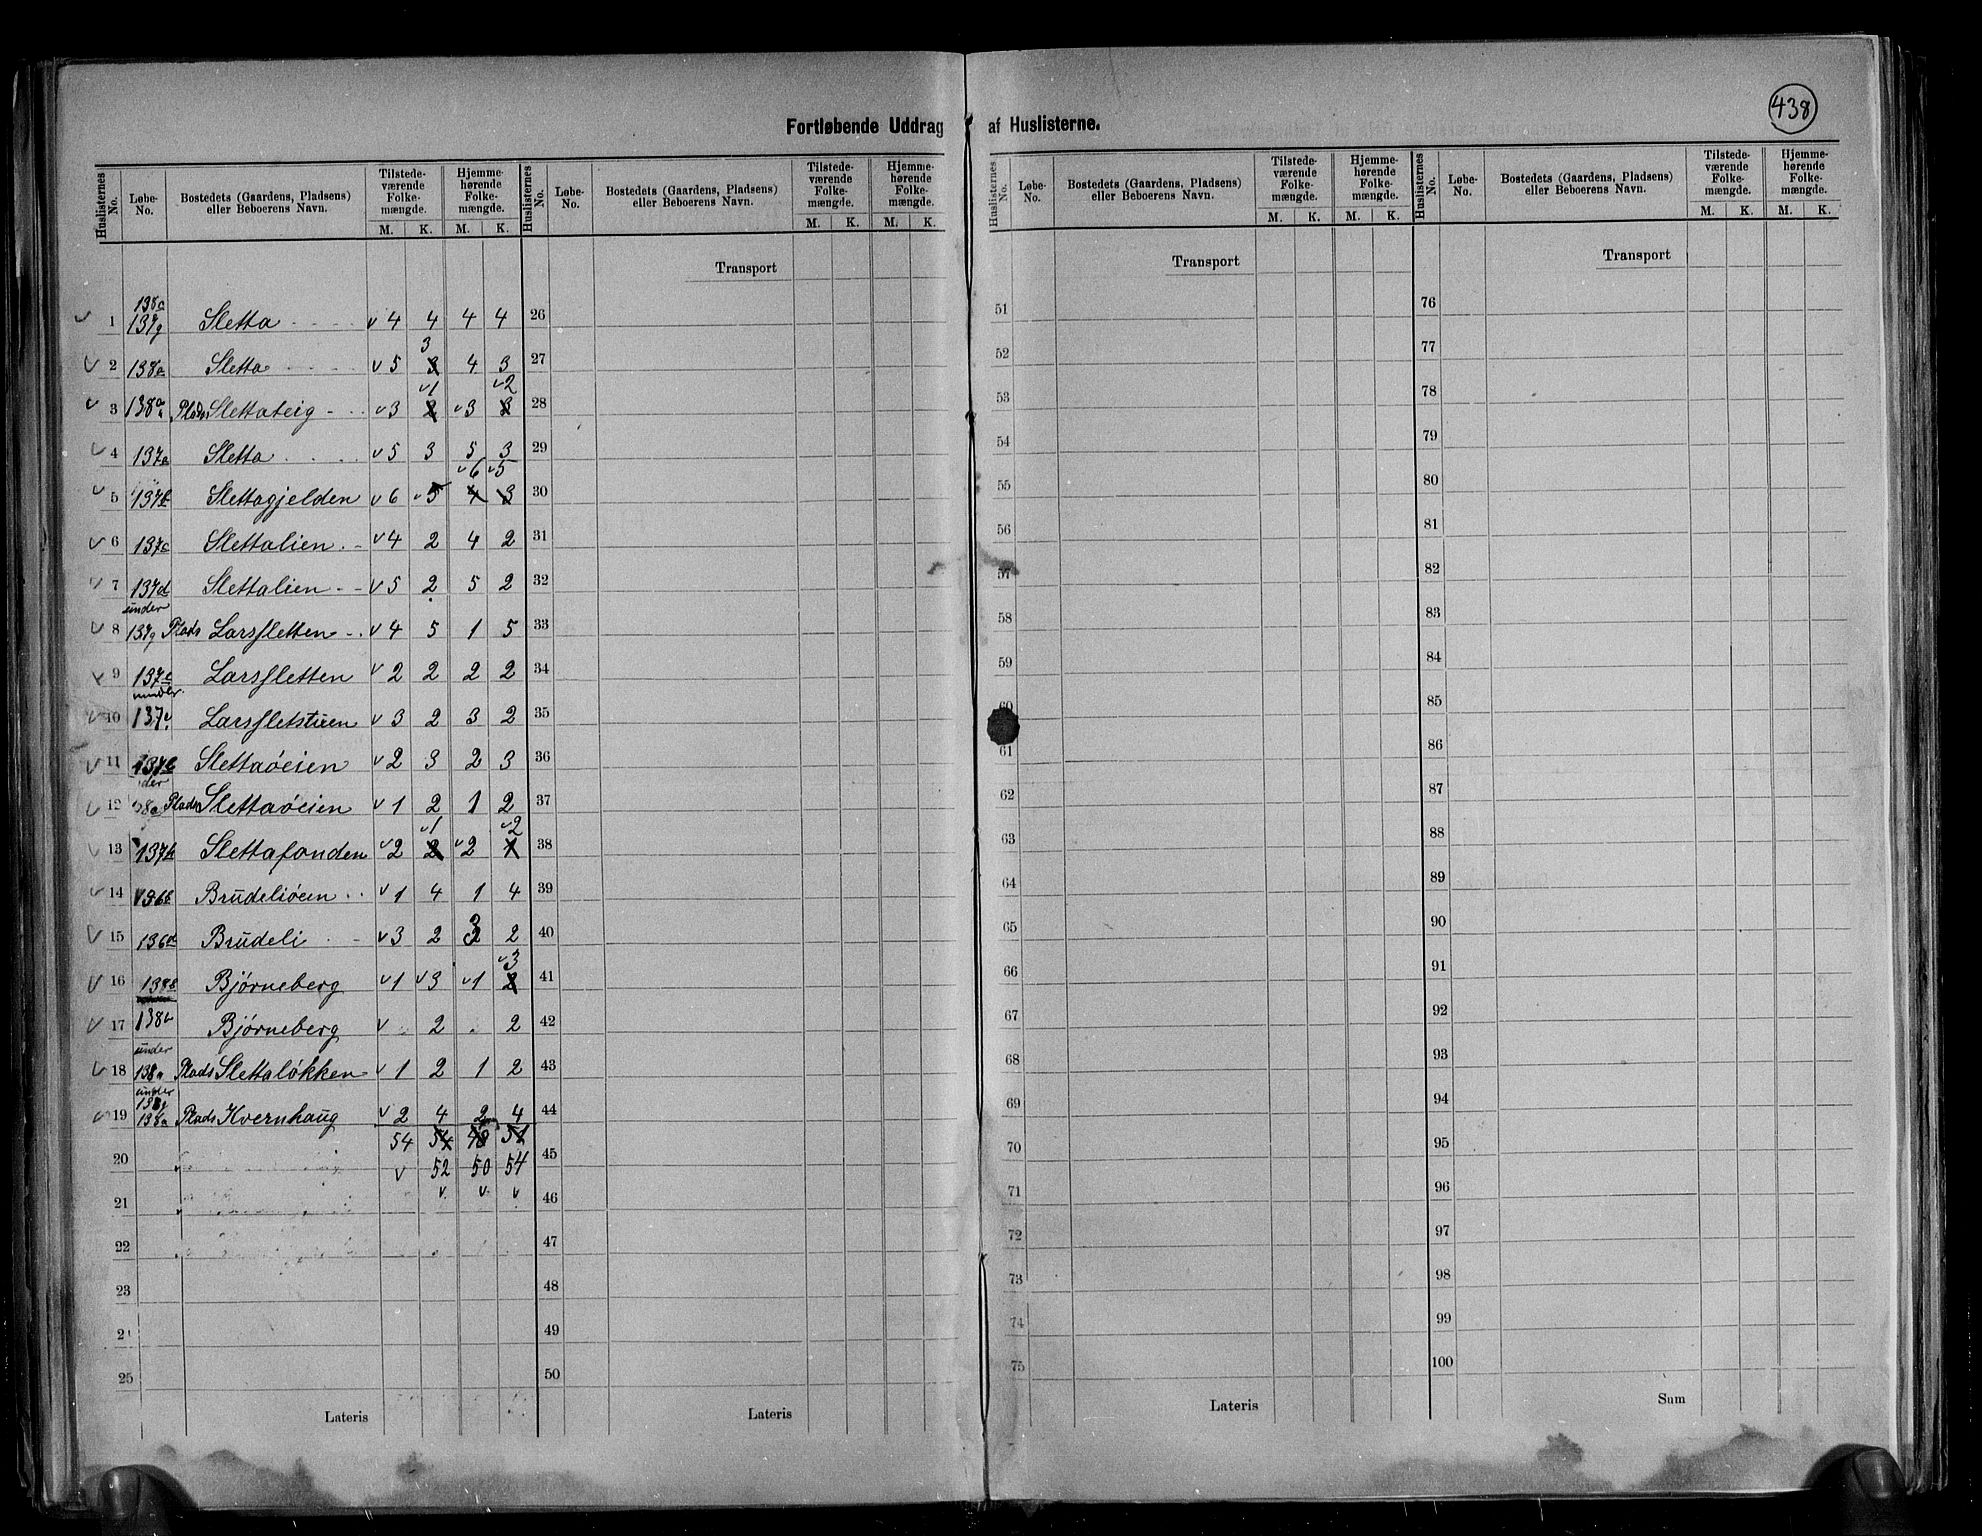 438
Fortløbende Uddrag af Huslisterne.
Huslisternes No. Løbe-No. Bostedets (Gaardens, Pladsens) eller Beboerens Navn. Tilstede-værende Folke-mængde. Hjemme-hørende Folke-mængde. Huslisternes No. Løbe-No. Bostedets (Gaardens, Pladsens) eller Beboerens Navn. Tilstede-værende Folke-mængde. Hjemme-hørende Folke-mængde. Huslisternes No. Løbe-No. Bostedets (Gaardens, Pladsens) eller Beboerens Navn. Tilstede-værende Folke-mængde. Hjemme-hørende Folke-mængde. Huslisternes No. Løbe-No. Bostedets (Gaardens, Pladsens) eller Beboerens Navn. Tilstede-værende Folke-mængde. Hjemme-hørende Folke-mængde.
M. K. M. K. M. K. M. K. M. K. M. K. M. K. M. K.
Transport Transport Transport
138a
1 137g Sletta 4 4 4 4 26 51 76
3
2 138a Sletta 5 3 4 3 27 52 77
1 2
3 138a Plads Slettateig 3 2 3 3 28 53 78
4 137a Sletta 5 3 5 3 29 54 79
6 5
5 137b Slettagjelden 6 5 4 3 30 55 80
6 137c Slettalien 4 2 4 2 31 56 81
7 137d Slettalien 5 2 5 2 32 57 82
under
8 137g Plads Larssletten 4 5 1 5 33 58 83
9 137e Larssletten 2 2 2 2 34 59 84
under
10 137 Larssletstuen 3 2 3 2 35 60 85
11 137 Slettaøeien 2 3 2 3 36 61 86
12 Plads Slettaøeien 1 2 1 2 37 62 87
1 2
13 137h Slettafonden 2 2 2 1 38 63 88
14 136 Brudeliøein 1 4 1 4 39 64 89
15 136d Brudeli 3 2 3 2 40 65 90
3
16 138b Bjørneberg 1 3 1 2 41 66 91
17 138 Bjørneberg 2 2 42 67 92
under
18 138a Plads Slettaløkken 1 2 1 2 43 68 93
under
19 138a Plads Kvernhaug 2 4 2 4 44 69 94
54 54 48 51
20 52 50 54 45 70 95
21 46 71 96
22 47 72 97
23 48 73 98
2 49 74 99
25 50 75 100
Lateris Lateris Lateris Sum